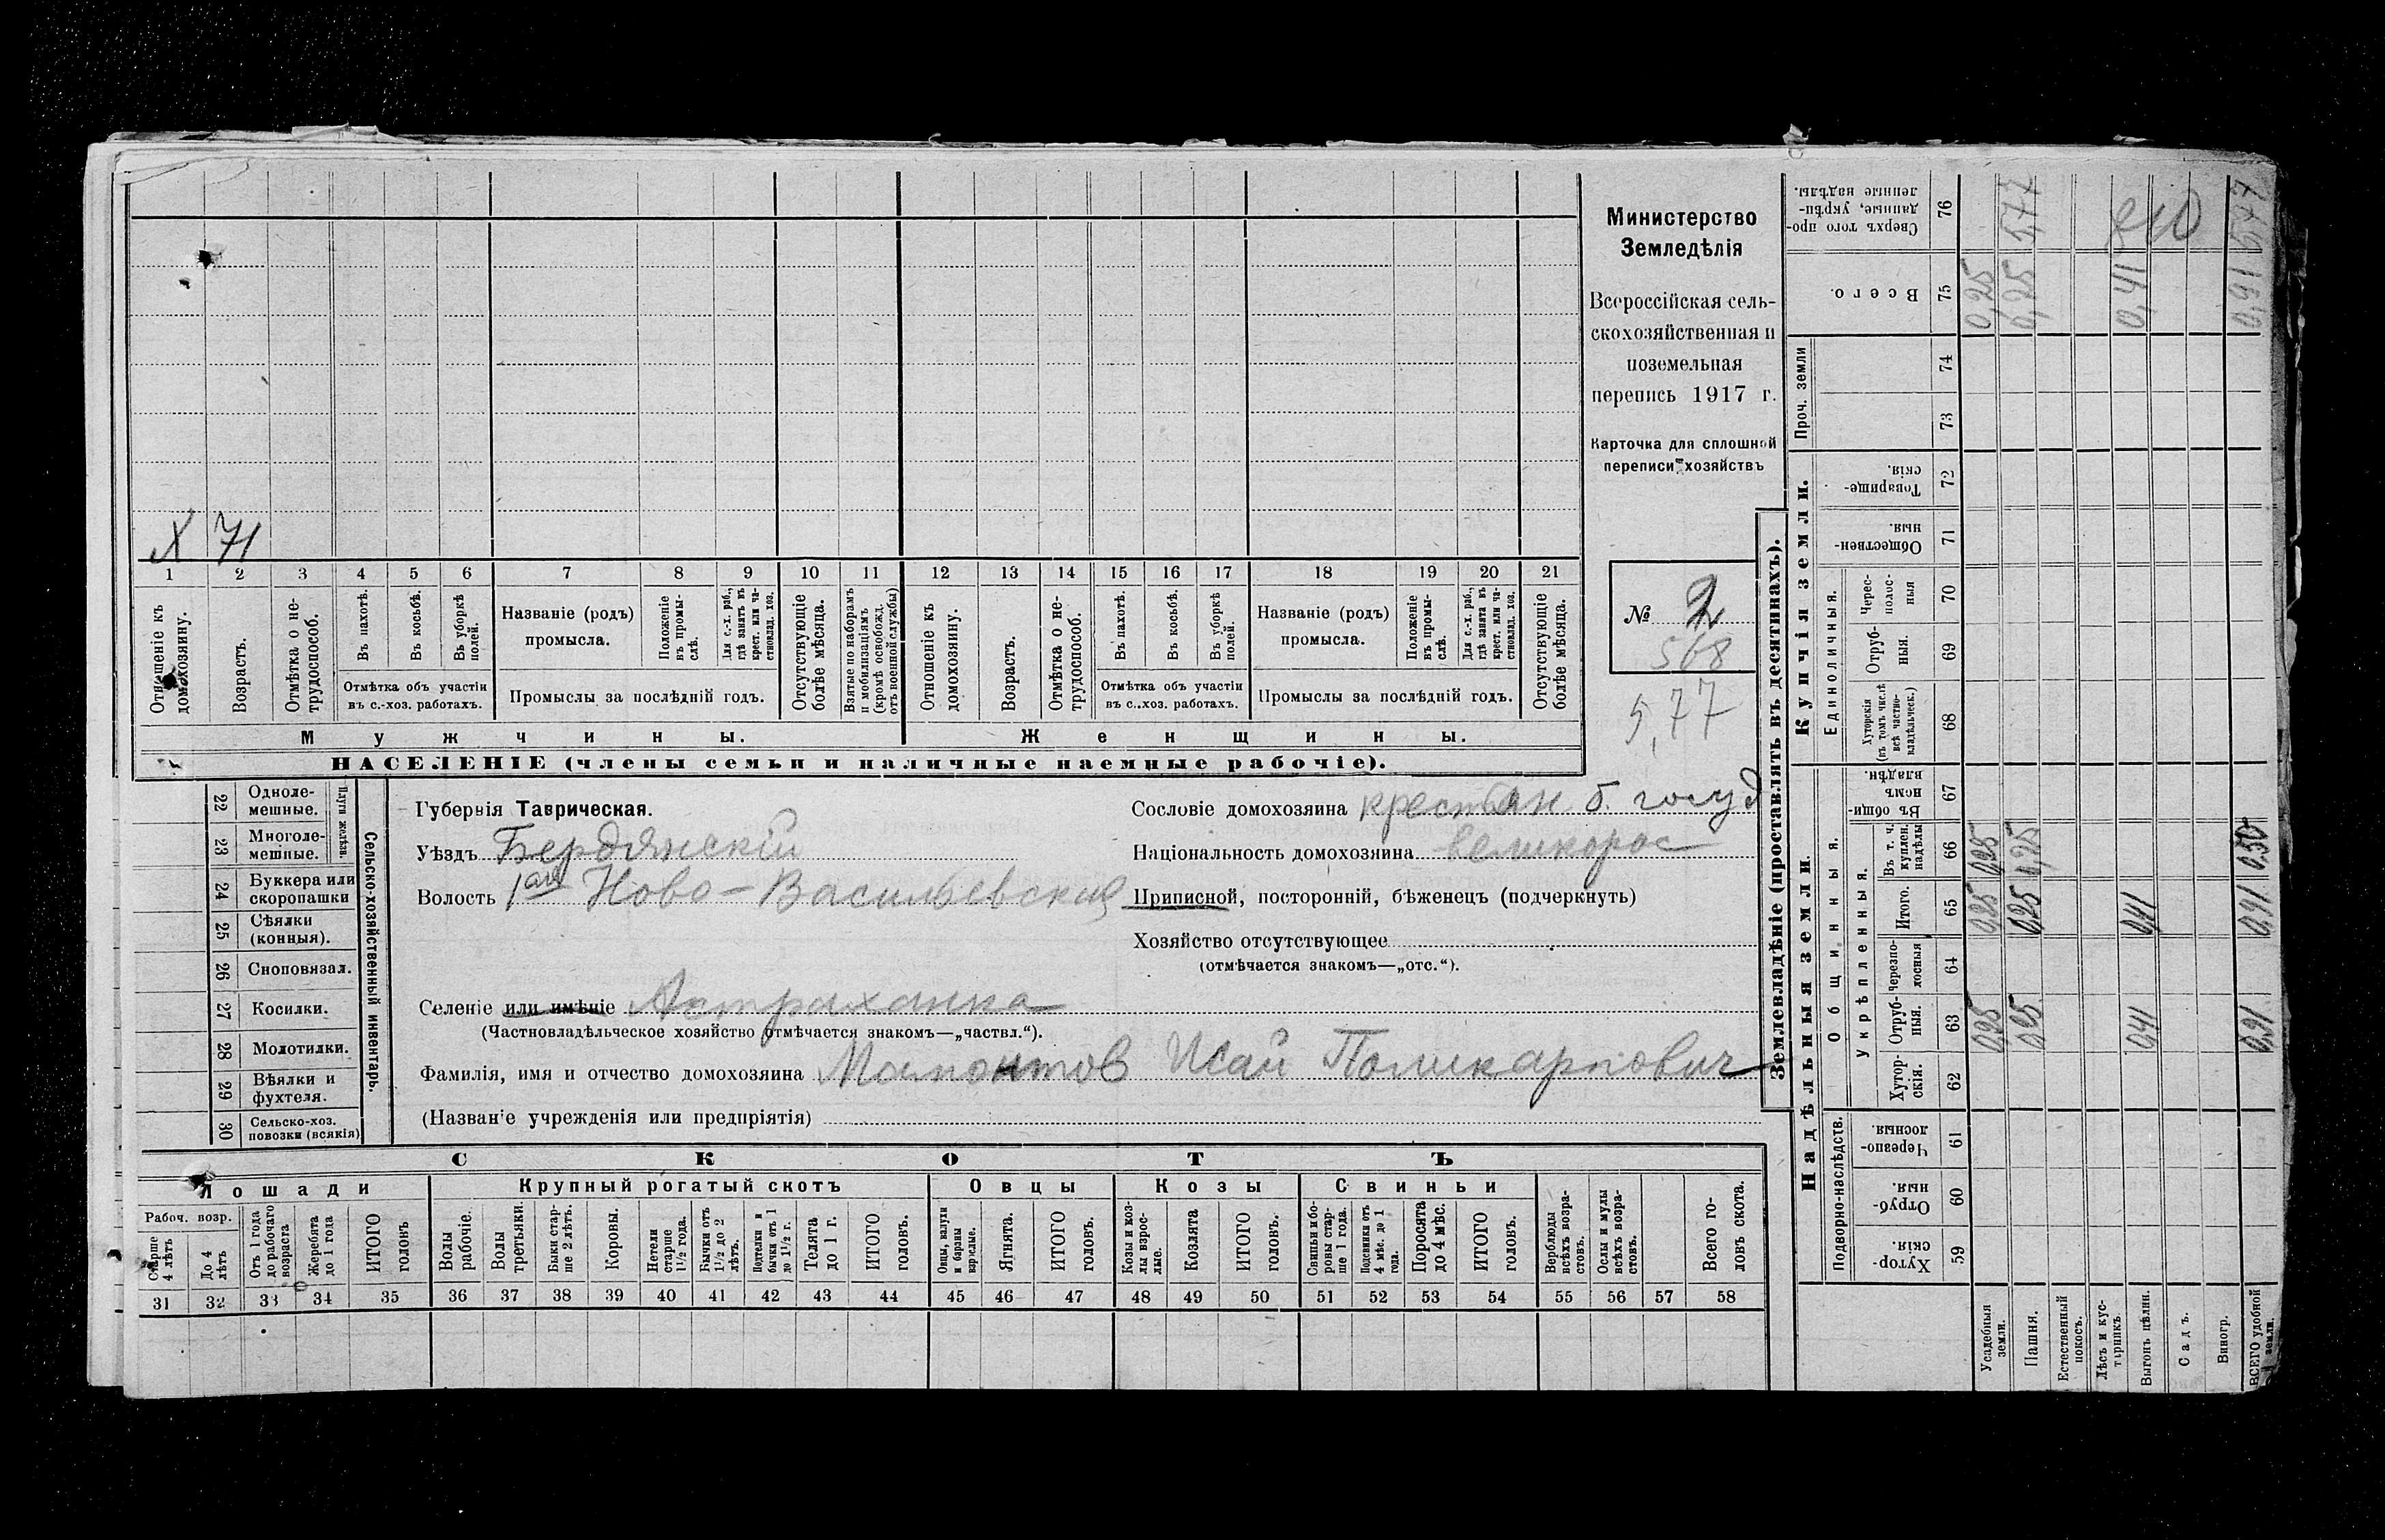 Х 71
1 2 3 4 5 6 7 8 9 10 11 12 13 14 15 16 17 18 19 20 21
Отношеніе къ домохозяину.
Возрастъ.
Отмѣтка о не-
трудоспособ.
Въ пахотѣ.
Въ косьбѣ.
Въ уборкѣ полей.
Отмѣтка объ участіи
въ с.-хоз. работахъ.
Названіе (родъ)
промысла.
Положеніе въ промы-
слѣ.
Для с.-х. раб.,
гдѣ занятъ въ
крест. или ча-
стновлад. хоз.
Промыслы за послѣдній годъ.
Отсутствующіе
болѣе мѣсяца.
Взятые по наборамъ
и мобилизаціямъ
(кромѣ освобожд.
отъ военной службы)
Отношеніе къ
домохозяину.
Возрастъ.
Отмѣтка о не-
трудоспособ.
Въ пахотѣ.
Въ косьбѣ.
Въ уборкѣ
полей.
Отмѣтка объ участіи
въ с..хоз. работахъ.
Названіе (родъ)
промысла.
Положеніе
въ промы-
слѣ.
Для с.-х. раб.,
гдѣ занята въ
крест. или ча-
стновлад. хоз.
Промыслы за послѣдній годъ.
Отсутствующіе
болѣе мѣсяца.
Мужчины.
Женщины.
НАСЕЛЕНІЕ (члены семьи и наличные наемные рабочіе).
Министерство
Земледѣлія
Всероссійская сель-
скохозяйственная и
поземельная
перепись 1917 г.
Карточка для сплошной
переписи хозяйствъ
№ 2
568
5,77
22 Одноле-
мешные.
23 Многоле-
мешные.
Плуги желѣз.
24 Буккера или
скоропашки
25 Сѣялки
(конныя).
26 Сноповязал.
27 Косилки.
28 Молотилки.
29 Вѣялки и
фухтеля.
30 Сельско-хоз.
повозки (всякія)
Сельско-хозяйственный инвентарь.
Губернія Таврическая.
Уѣздъ Бердянскій
Волость 1ая Ново-Васильевская
Селеніе или имѣніе Астраханка
(Частновладѣльческое хозяйство отмѣчается знакомъ—„частвл.“).
Фамилія, имя и отчество домохозяина Мамонтов Исай Поликарпович
(Названіе учрежденія или предпріятія)
Сословіе домохозяина крестьян б. госуд
Національность домохозяина великорос
Приписной, посторонній, бѣженецъ (подчеркнуть)
Хозяйство отсутствующее
(отмѣчается знакомъ—„отс.“).
СКОТЪ
Лошади
Рабоч. возр.
Старше
4 лѣтъ
До 4
лѣтъ
Отъ 1 года
до рабочаго
возраста
Жеребята
до 1 года
ИТОГО
головъ
Крупный рогатый скотъ
Волы
рабочіе.
Волы
третьяки.
Быки стар-
ше 2 лѣтъ.
Коровы.
Нетели
старше
1½ года.
Бычки отъ
1½ до 2
лѣтъ.
Подтелки и
бычки отъ 1
до 1½ г.
Телята
до 1 г.
ИТОГО
головъ.
Овцы
Овцы, валухи
и бараны
взрослые.
Ягнята.
ИТОГО
головъ.
Козы
Козы и коз-
лы взрос-
лые.
Козлята
ИТОГО
головъ.
Свиньи
Свиньи и бо-
ровы стар-
ше 1 года.
Подсвинки отъ
4 мѣс. до 1
года.
Поросята
до 4 мѣс.
ИТОГО
головъ.
Верблюды
всѣхъ возра-
стовъ.
Ослы и мулы
всѣхъ возра-
стовъ.
Всего го-
ловъ скота.
31 32 33 34 35 36 37 38 39 40 41 42 43 44 45 46 47 48 49 50 51 52 53 54 55 56 57 58
Землевладѣніе (проставлять въ десятинахъ).
Надѣльныя земли.
Подворно-наслѣдств.
Хутор-
скія. 59
Отруб-
ныя. 60
Черезпо-
лосныя. 61
Общинныя.
Укрѣпленныя.
Хутор-
скія. 62
Отруб-
ныя. 63 0,25 0,25 0,41 0,91
Черезпо-
лосныя 64
Итого. 65 0,25 0,25 0,41 0,91
Въ т. ч.
куплен.
надѣлы 66 0,25 0,25 0,50
Въ общи-
номъ
владѣн. 67
Купчія земли.
Единоличныя.
Хуторскія
(въ томъ числѣ
всѣ частно-
владѣльческ.) 68
Отруб-
ныя. 69
Черес-
полос-
ныя 70
Обществен-
ныя. 71
Товарище-
скія. 72
Проч. земли
73 74
Всего. 75 0,25 0,25 0,41 0,91
Сверхъ того про-
данные, укрѣп-
ленные надѣлы. 76 5,77 5,77
Усадебныя
земли.
Пашня.
Естественный
покосъ.
Лѣсъ и кус-
тарникъ.
Выгонъ цѣлин.
Садъ.
Виногр.
ВСЕГО удобной
земли.